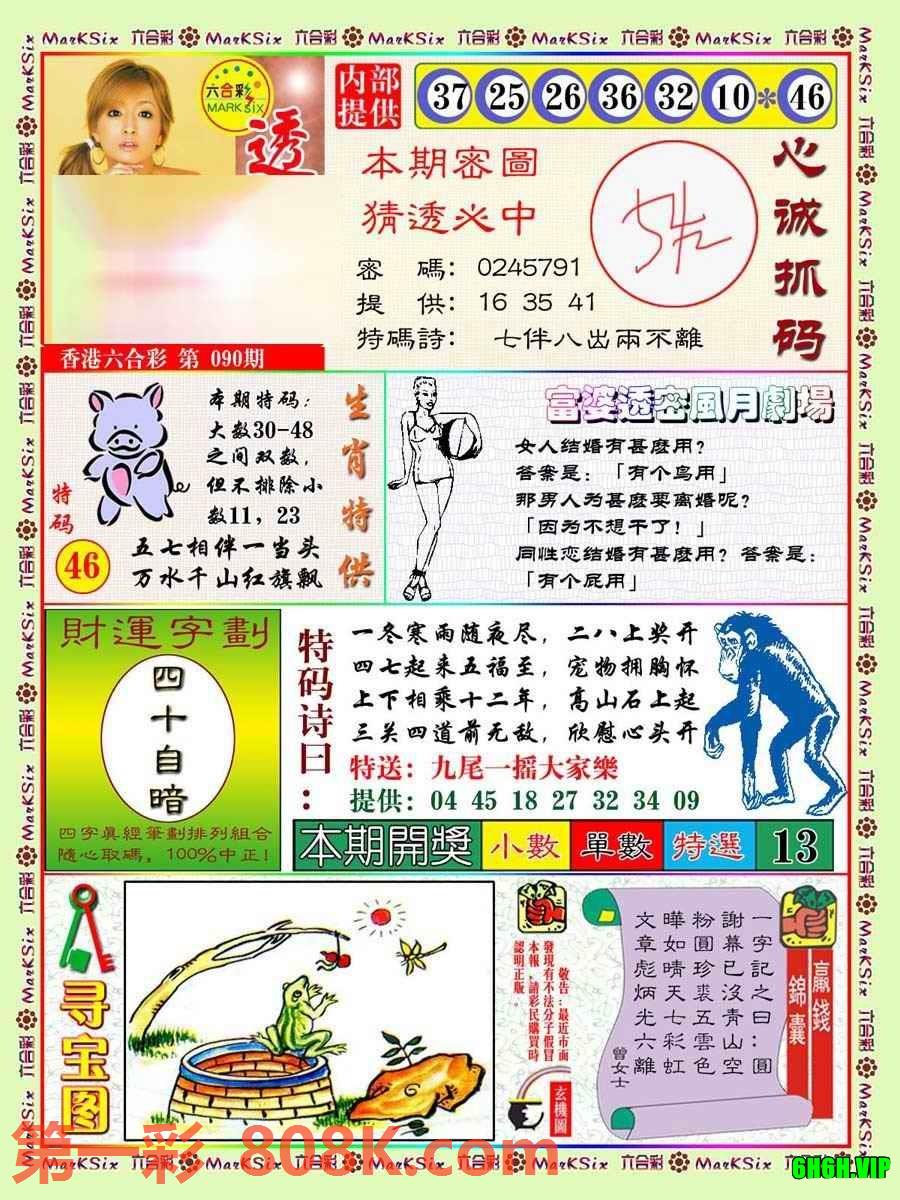 MarKSix 六合彩 MarKSix 六合彩 MarKSix 六合彩 MarKSix 六合彩 MarKSix 六合彩 MarKSix
六合彩
MARK SIX
透
内部
提供
37 25 26 36 32 10 * 46
本期密圖
猜透必中
密 碼: 0245791
提 供: 16 35 41
特碼詩: 七伴八出兩不離
心诚抓码
香港六合彩 第 090期
本期特码:
大数30-48
之间双数,
但不排除小
数11, 23
特码
46
五七相伴一当头
万水千山红旗飘
生肖特供
富婆透密風月劇場
女人结婚有甚麽用?
答案是: 「有个鸟用」
那男人为甚麽要离婚呢?
「因为不想干了! 」
同性恋结婚有甚麽用? 答案是:
「有个屁用」
財運字劃
四十自暗
四字真經筆劃排列組合
隨心取碼, 100%中正!
特码诗曰:
一冬寒雨随夜尽, 二八上奖开
四七起来五福至, 宠物拥胸怀
上下相乘十二年, 高山石上起
三关四道前无敌, 欣慰心头开
特送: 九尾一摇大家樂
提供: 04 45 18 27 32 34 09
本期開獎 小數 單數 特選 13
寻宝图
敬告:最近市面
發現有不法分子假冒
本報,請彩民購買時
認明正版。
玄機圖
贏錢
錦囊
一字記之曰:圓
謝幕已沒青山空
粉圓珍裘五雲色
曄如晴天七彩虹
文章彪炳光六離
曾女士
第一彩 808K.com
MarKSix 六合彩 MarKSix 六合彩 MarKSix 六合彩 MarKSix 六合彩 MarKSix 六合彩
6H6H.VIP